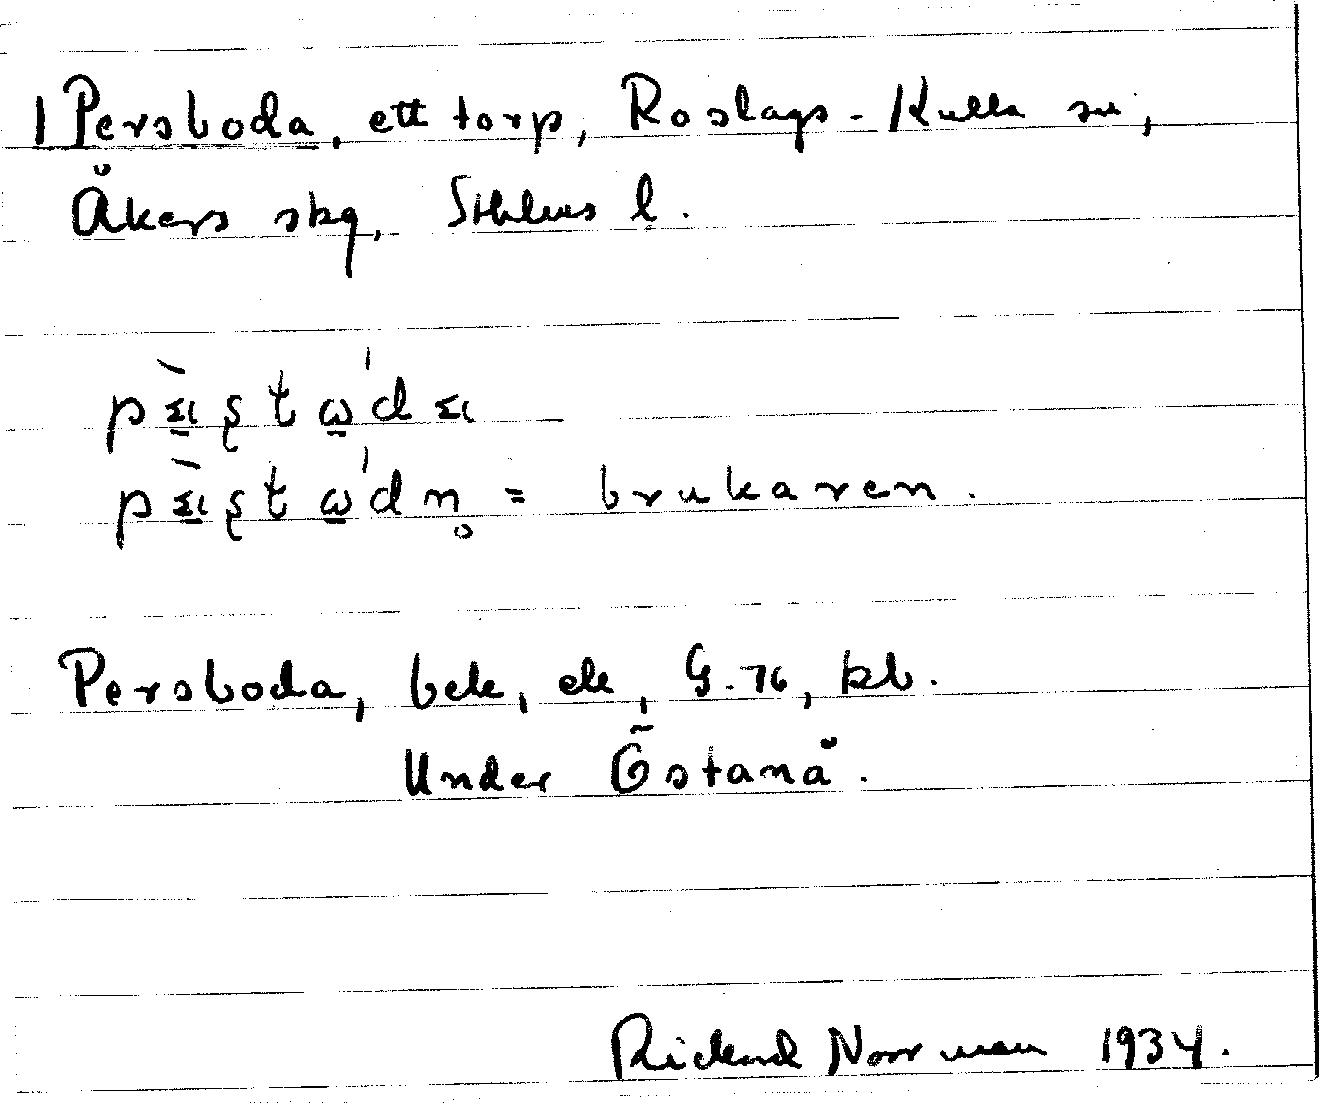 1 Persboda, ett torp, Roslags-Kulla sn,
Åkers skg, Sthlms l.
brukaren.
Persboda, bek, ek, G.76, kb.
Under Östanå.
Rickard Norrman 1934.